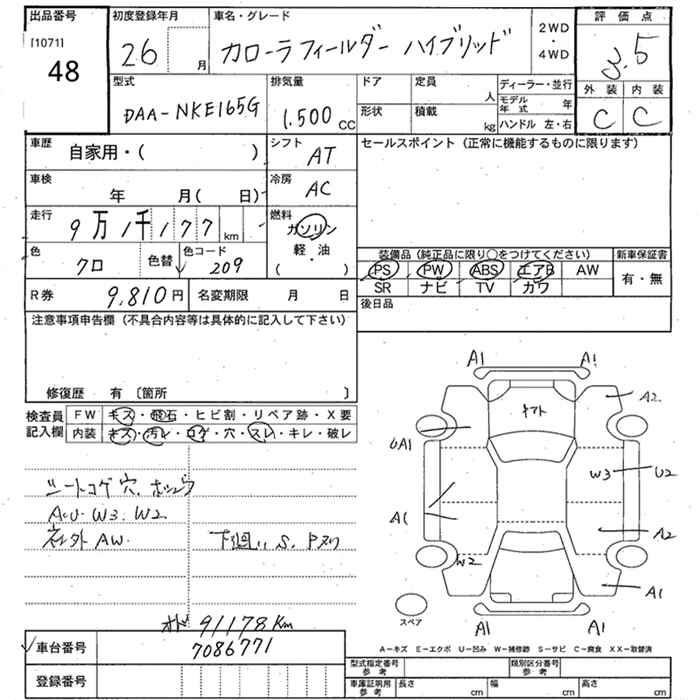 出品番号 初度登録年月 車名・グレード 2WD・4WD 評価点
[1071] 48 26 月 カローラフィールダー ハイブリッド 3.5
型式 排気量 ドア 定員 人 ディーラー・並行 外装 内装
DAA-NKE165G 1.500 CC 形状 積載 kg モデル年式 年 C C
ハンドル 左・右
車歴 自家用・( ) シフト AT セールスポイント (正常に機能するものに限ります)
車検 年 月( 日) 冷房 AC
走行 9万1千177 km 燃料 ガソリン 軽・油 ( )
色 クロ 色替 色コード 209 装備品 (純正品に限り○をつけてください) 新車保証書
PS PW ABS エアB AW 有・無
SR ナビ TV カワ
R券 9,810円 名変期限 月 日 後日品
注意事項申告欄 (不具合内容等は具体的に記入して下さい)
修復歴 有 〔箇所 〕
検査員記入欄 FW キズ・飛石・ヒビ割・リペア跡・X要
内装 キズ・汚レ・コゲ・穴・スレ・キレ・破レ
シートコゲ穴.
A.U. W3. W2
社外 AW. 下廻り S.
オド 91178Km
車台番号 7086771
登録番号
A1 A1
A2
UA1
W3 U2
A1
A2
W2
A1
スペア
A1 A1
A-キズ E-エクボ U-凹み W-補修跡 S-サビ C-腐食 XX-取替済
型式指定番号 参考 類別区分番号 参考
車庫証明用 参考 長さ cm 幅 cm 高さ cm